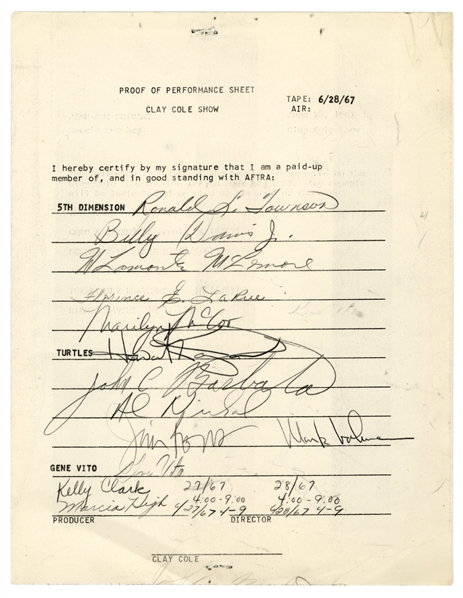 PROOF OF PERFORMANCE SHEET
TAPE: 6/28/67
CLAY COLE SHOW
AIR:
I hereby certify by my signature that I am a paid-up
member of, and in good standing with AFTRA:
5TH DIMENSION Ronald L. Townson
Billy Davis Jr.
McLemore
Florence E. LaRue
Marilyn McCoo
TURTLES Howard
John C Barbata
Al Nichol
Jim Pons Mark Volman
GENE VITO Gene Vito
Kelly Clark 27/67 28/67
Marcia High 4:00-9:00 4:00-9:00
4-9 4-9
PRODUCER DIRECTOR
CLAY COLE